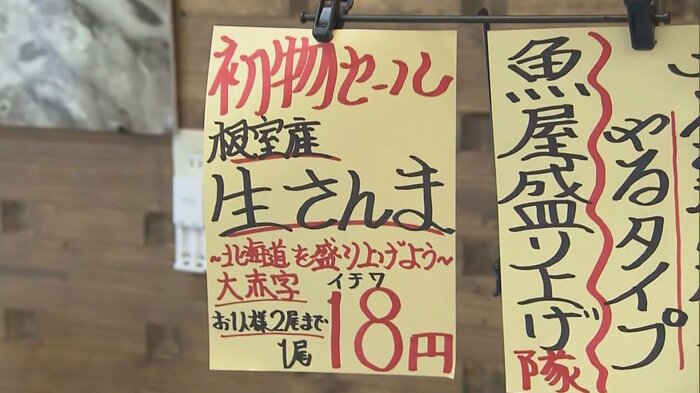 初物セール
根室産
生さんま
~北海道を盛り上げよう~
大赤字
イチワ
お1人様2尾まで
1尾
18円
やるタイプ
魚屋盛り上げ隊